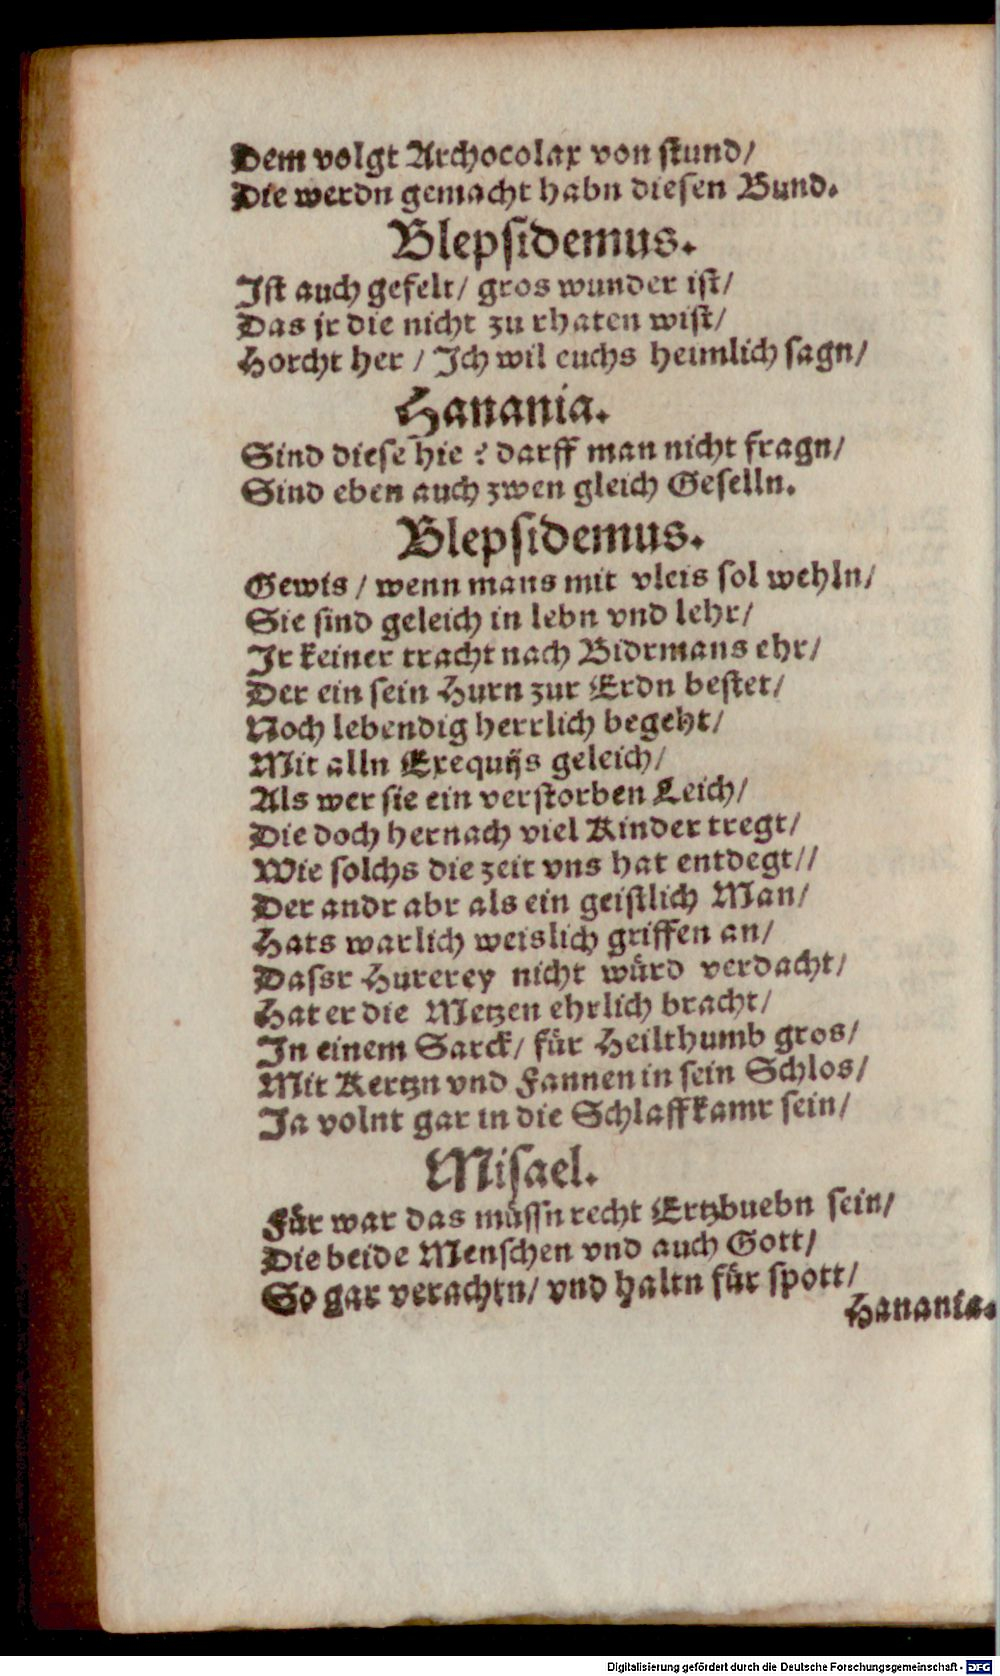 Dem volgt Archocolax von stund/
Die werdn gemacht habn diesen Bund.
Blepsidemus.
Ist auch gefelt/ gros wunder ist/
Das jr die nicht zu rhaten wist/
Horcht her / Ich wil euchs heimlich sagn/
Hanania.
Sind diese hie ? darff man nicht fragn/
Sind eben auch zwen gleich Geselln.
Blepsidemus.
Gewis / wenn mans mit vleis sol wehln/
Sie sind geleich in lebn vnd lehr/
Ir keiner tracht nach Bidrmans ehr/
Der ein sein Hurn zur Erdn bestet/
Noch lebendig herrlich begeht/
Mit alln Exequijs geleich/
Als wer sie ein verstorben Leich/
Die doch hernach viel Kinder tregt/
Wie solchs die zeit vns hat entdegt//
Der andr abr als ein geistlich Man/
Hats warlich weislich griffen an/
Dassr Hurerey nicht würd verdacht/
Hat er die Metzen ehrlich bracht/
In einem Sarck/ für Heilthumb gros/
Mit Kertzn vnd Fannen in sein Schlos/
Ja volnt gar in die Schlaffkamr sein/
Misael.
Für war das müssn recht Ertzbuebn sein/
Die beide Menschen vnd auch Gott/
So gar verachtn/ vnd haltn für spott/
Hanania.
Digitalisierung gefördert durch die Deutsche Forschungsgemeinschaft - DFG